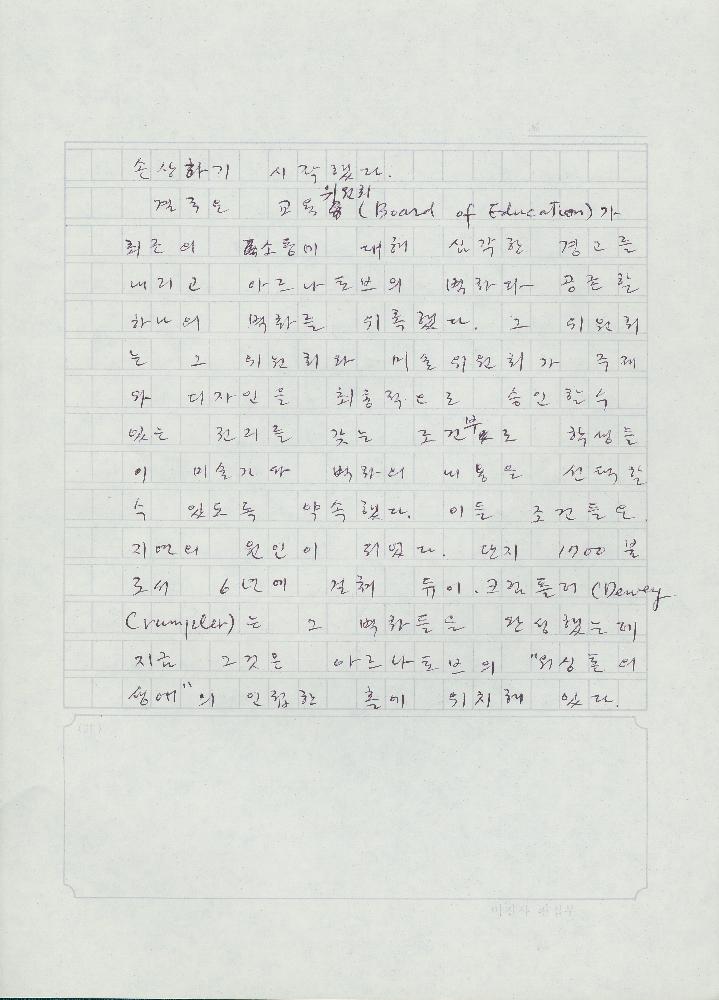 손상하기 시작했다.
위원회
결국은 교육 (Board of Education)가
최근의 소동에 대해 심각한 경고를
내리고 아르나토브의 벽화와 공존할
하나의 벽화를 위촉했다. 그 위원회
는 그 위원회와 미술위원회가 주제
와 디자인을 최종적으로 승인할 수
있는 권리를 갖는 조건부로 학생들
이 미술가와 벽화의 내용을 선택할
수 있도록 약속했다. 이들 조건들은
지연의 원인이 되었다. 단지 1700불
로서 6년에 걸쳐 듀이.크럼플러 (Dewey
Crumpler)는 그 벽화들을 완성했는데
지금 그것은 아르나토브의 "워싱톤의
생애"의 인접한 홀에 위치해 있다.
(21)
미진사 편집부